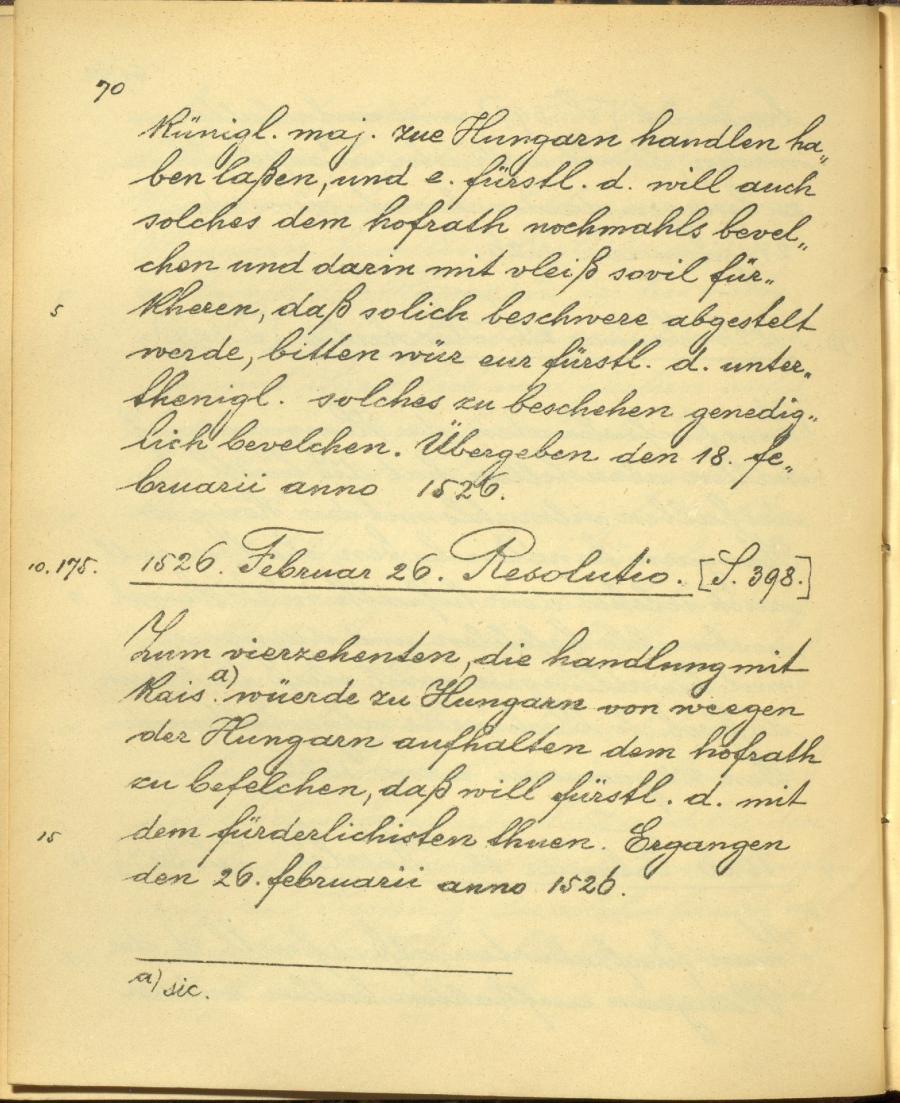 70
Künigl. maj. zue Hungarn handlen ha„
ben laßen, und e. fürstl. d. will auch
solches dem hofrath nochmahls bevel„
chen und darin mit vleiß sovil für„
5 kheren, daß solich beschwere abgestelt
werde, bitten wür eur fürstl. d. unter„
thenigl. solches zu beschehen genedig„
lich bevelchen. Übergeben den 18. fe„
bruarii anno 1526.
10. 175. 1526. Februar 26. Resolutio. [S. 398.]
Zum vierzehenten, die handlung mit
Kais.a) wüerde zu Hungarn von weegen
der Hungarn aufhalten dem hofrath
zu befelchen, daß will fürstl. d. mit
15 dem fürderlichisten thuen. Ergangen
den 26. februarii anno 1526.
a) sic.